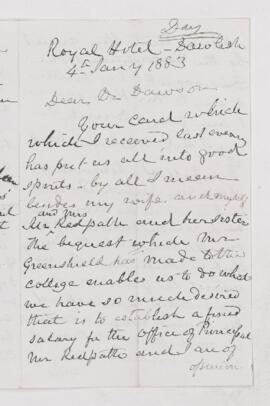 Day
Royal Hotel - Dawlish
4th Jany 1883
Dear Dr Dawson
Your card which
which I received last eveng
has put us all into good
spirits - by all I mean
besides my wife and myself
and Mrs
Mr Redpath and her sister
the bequest which Mr
Greenshield has made to the
college enables us to do what
we have so much desired
that is to establish a fixed
salary for the Office of Principal
Mr Redpath and I are of
opinion